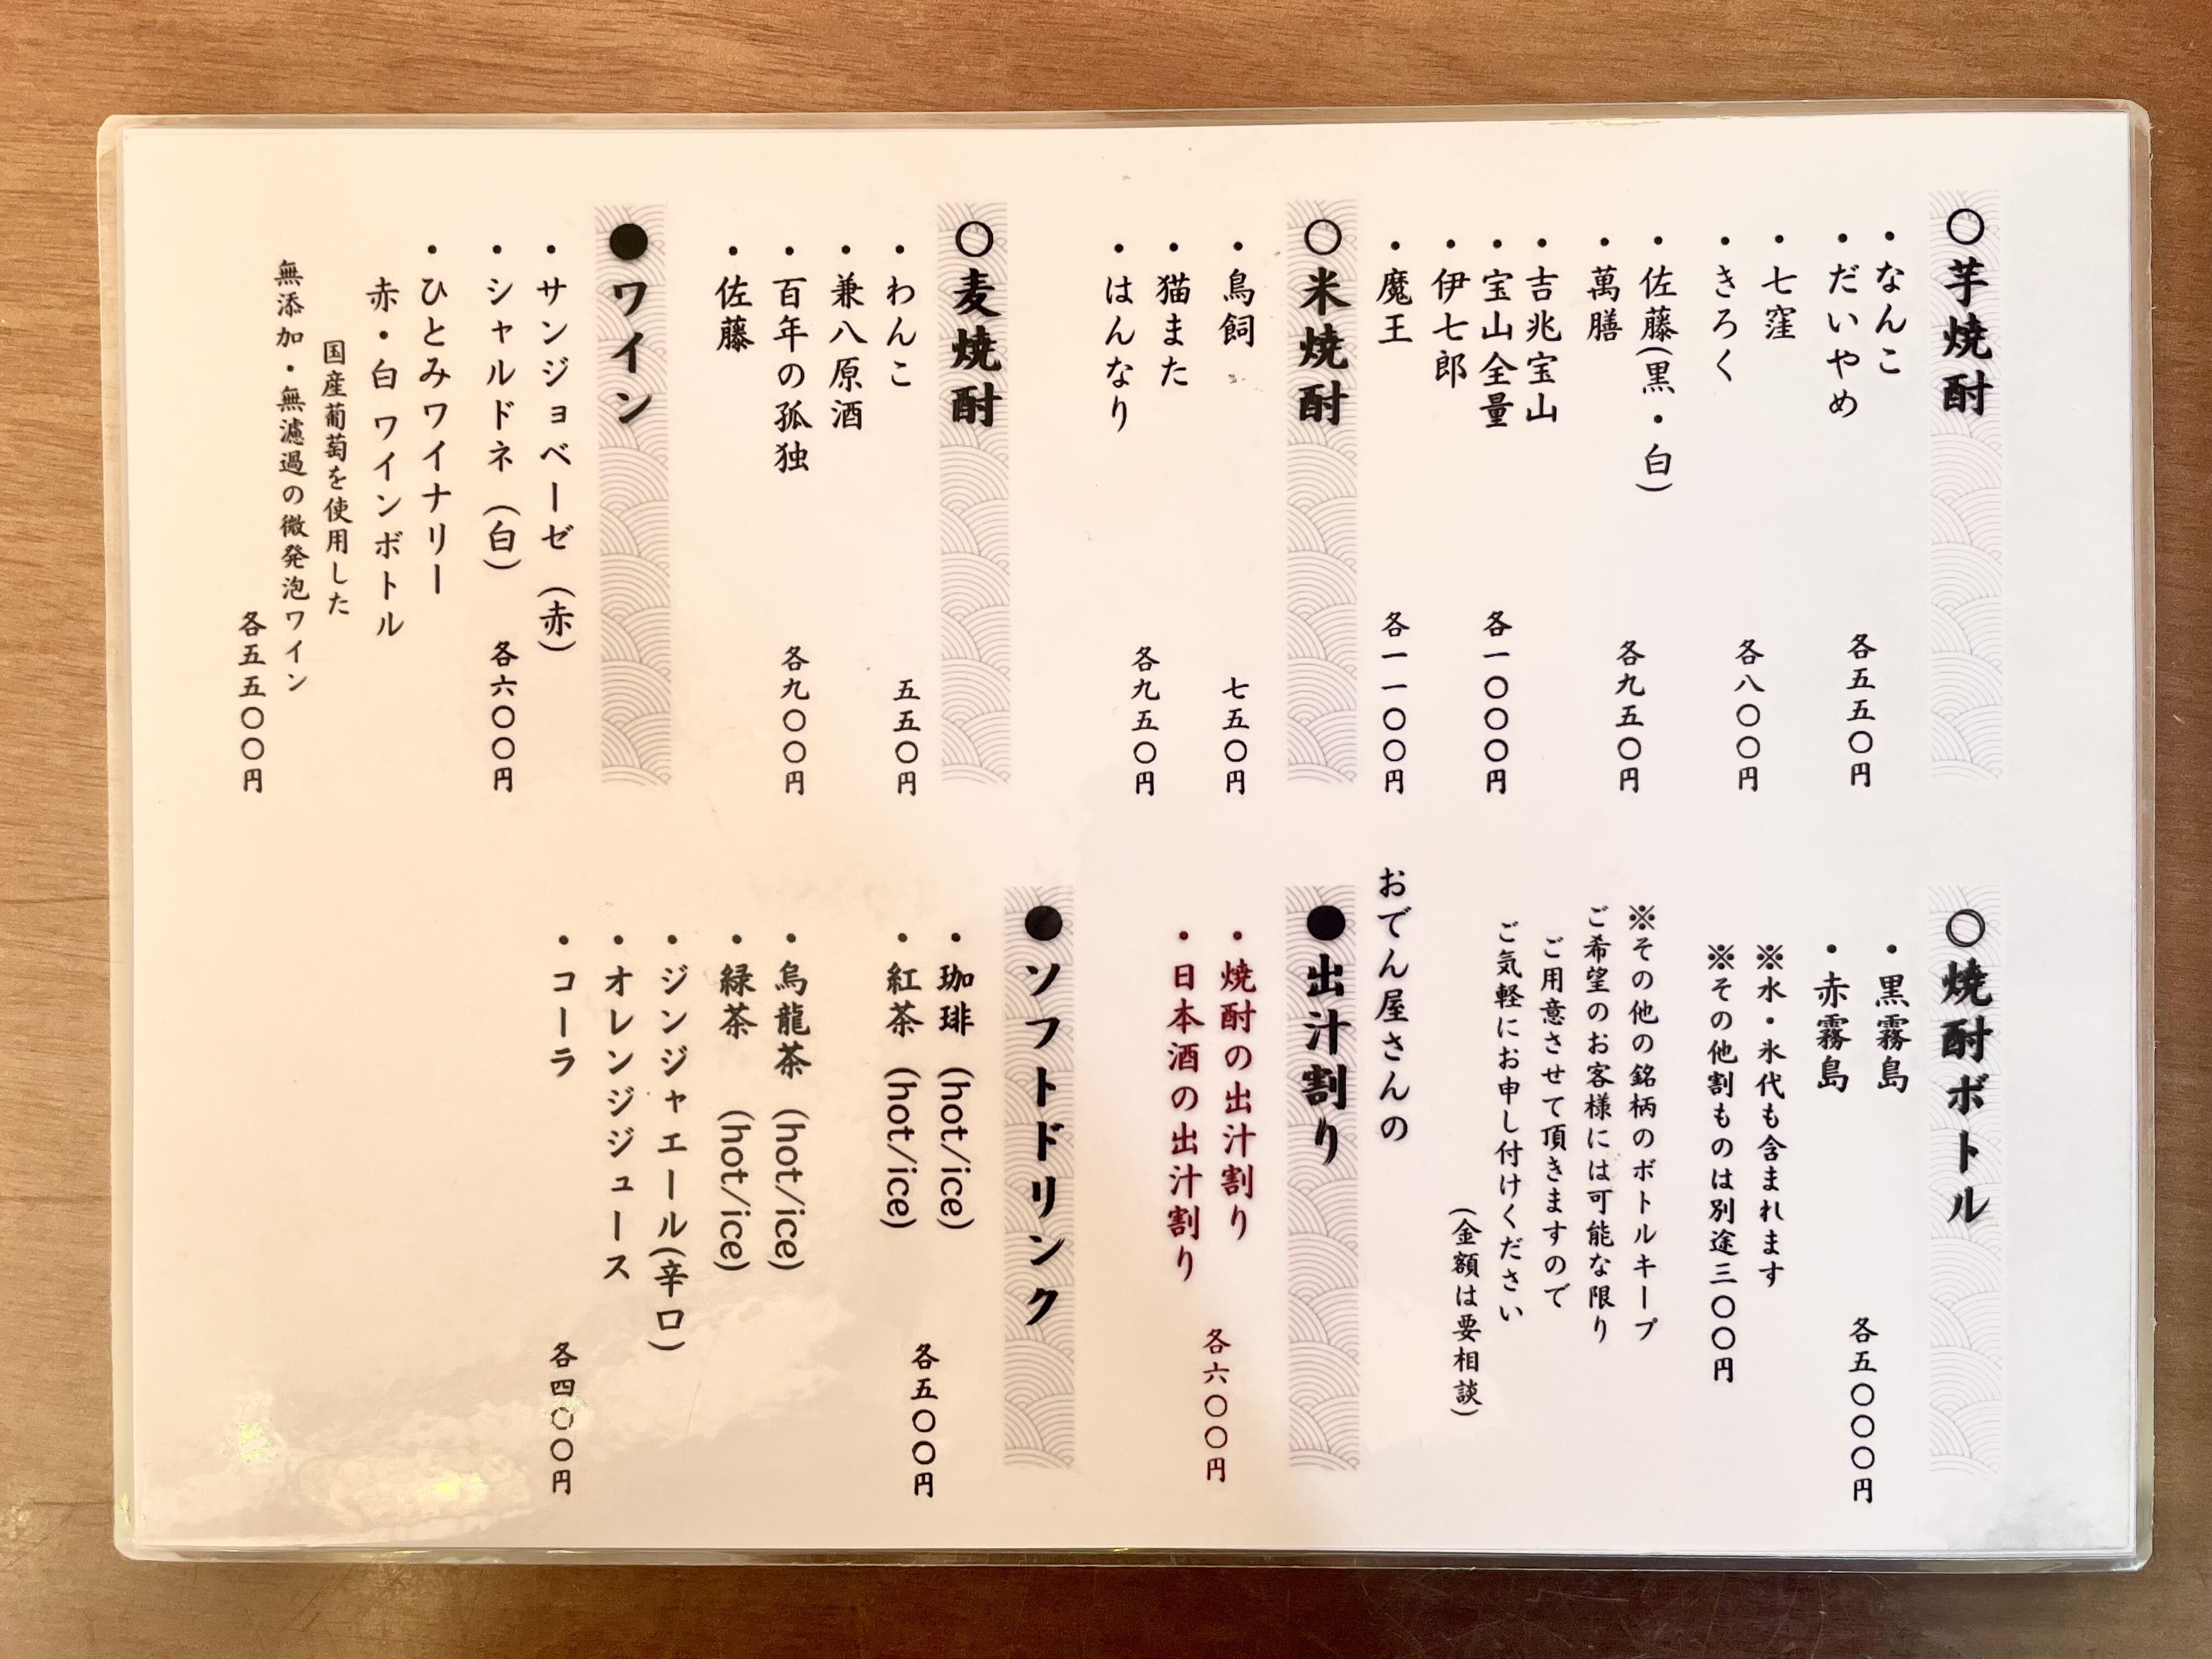 ○芋焼酎
・なんこ
・だいやめ
各五五〇円
・七窪
・きろく
各八〇〇円
・佐藤(黒・白)
・萬膳
各九五〇円
・吉兆宝山
・宝山全量
・伊七郎
各一〇〇〇円
・魔王
各一一〇〇円
○米焼酎
・鳥飼
七五〇円
・猫また
・はんなり
各九五〇円
○麦焼酎
・わんこ
五五〇円
・兼八原酒
・百年の孤独
・佐藤
各九〇〇円
●ワイン
・サンジョベーゼ(赤)
・シャルドネ(白)
各六〇〇円
・ひとみワイナリー
赤・白 ワインボトル
国産葡萄を使用した
無添加・無濾過の微発泡ワイン
各五五〇〇円
○焼酎ボトル
・黒霧島
・赤霧島
各五〇〇〇円
※水・氷代も含まれます
※その他割ものは別途三〇〇円
※その他の銘柄のボトルキープ
ご希望のお客様には可能な限り
ご用意させて頂きますので
ご気軽にお申し付けください
(金額は要相談)
おでん屋さんの
●出汁割り
・焼酎の出汁割り
・日本酒の出汁割り
各六〇〇円
●ソフトドリンク
・珈琲 (hot/ice)
・紅茶 (hot/ice)
各五〇〇円
・烏龍茶 (hot/ice)
・緑茶 (hot/ice)
・ジンジャエール(辛口)
・オレンジジュース
・コーラ
各四〇〇円